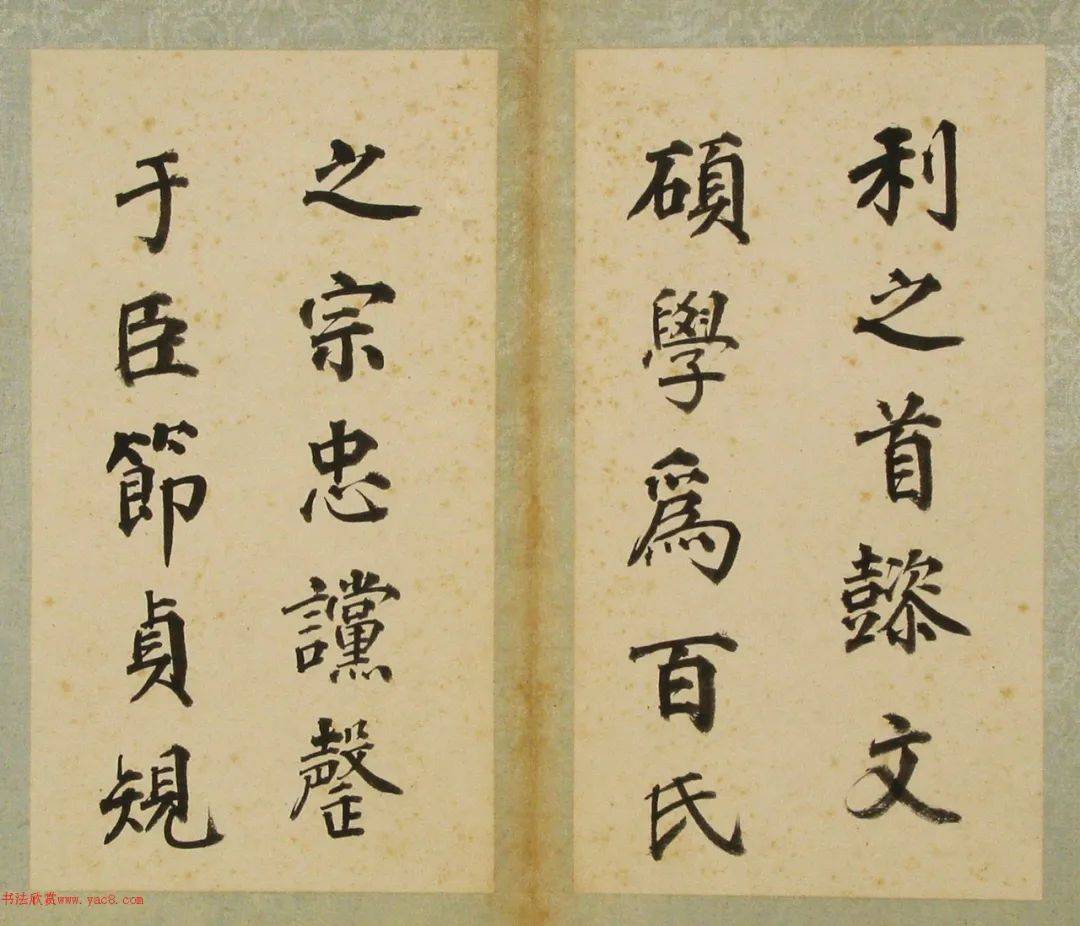 利之首懿文
碩學為百氏
之宗忠讜罄
于臣節貞䂓
书法欣赏www.yac8.com